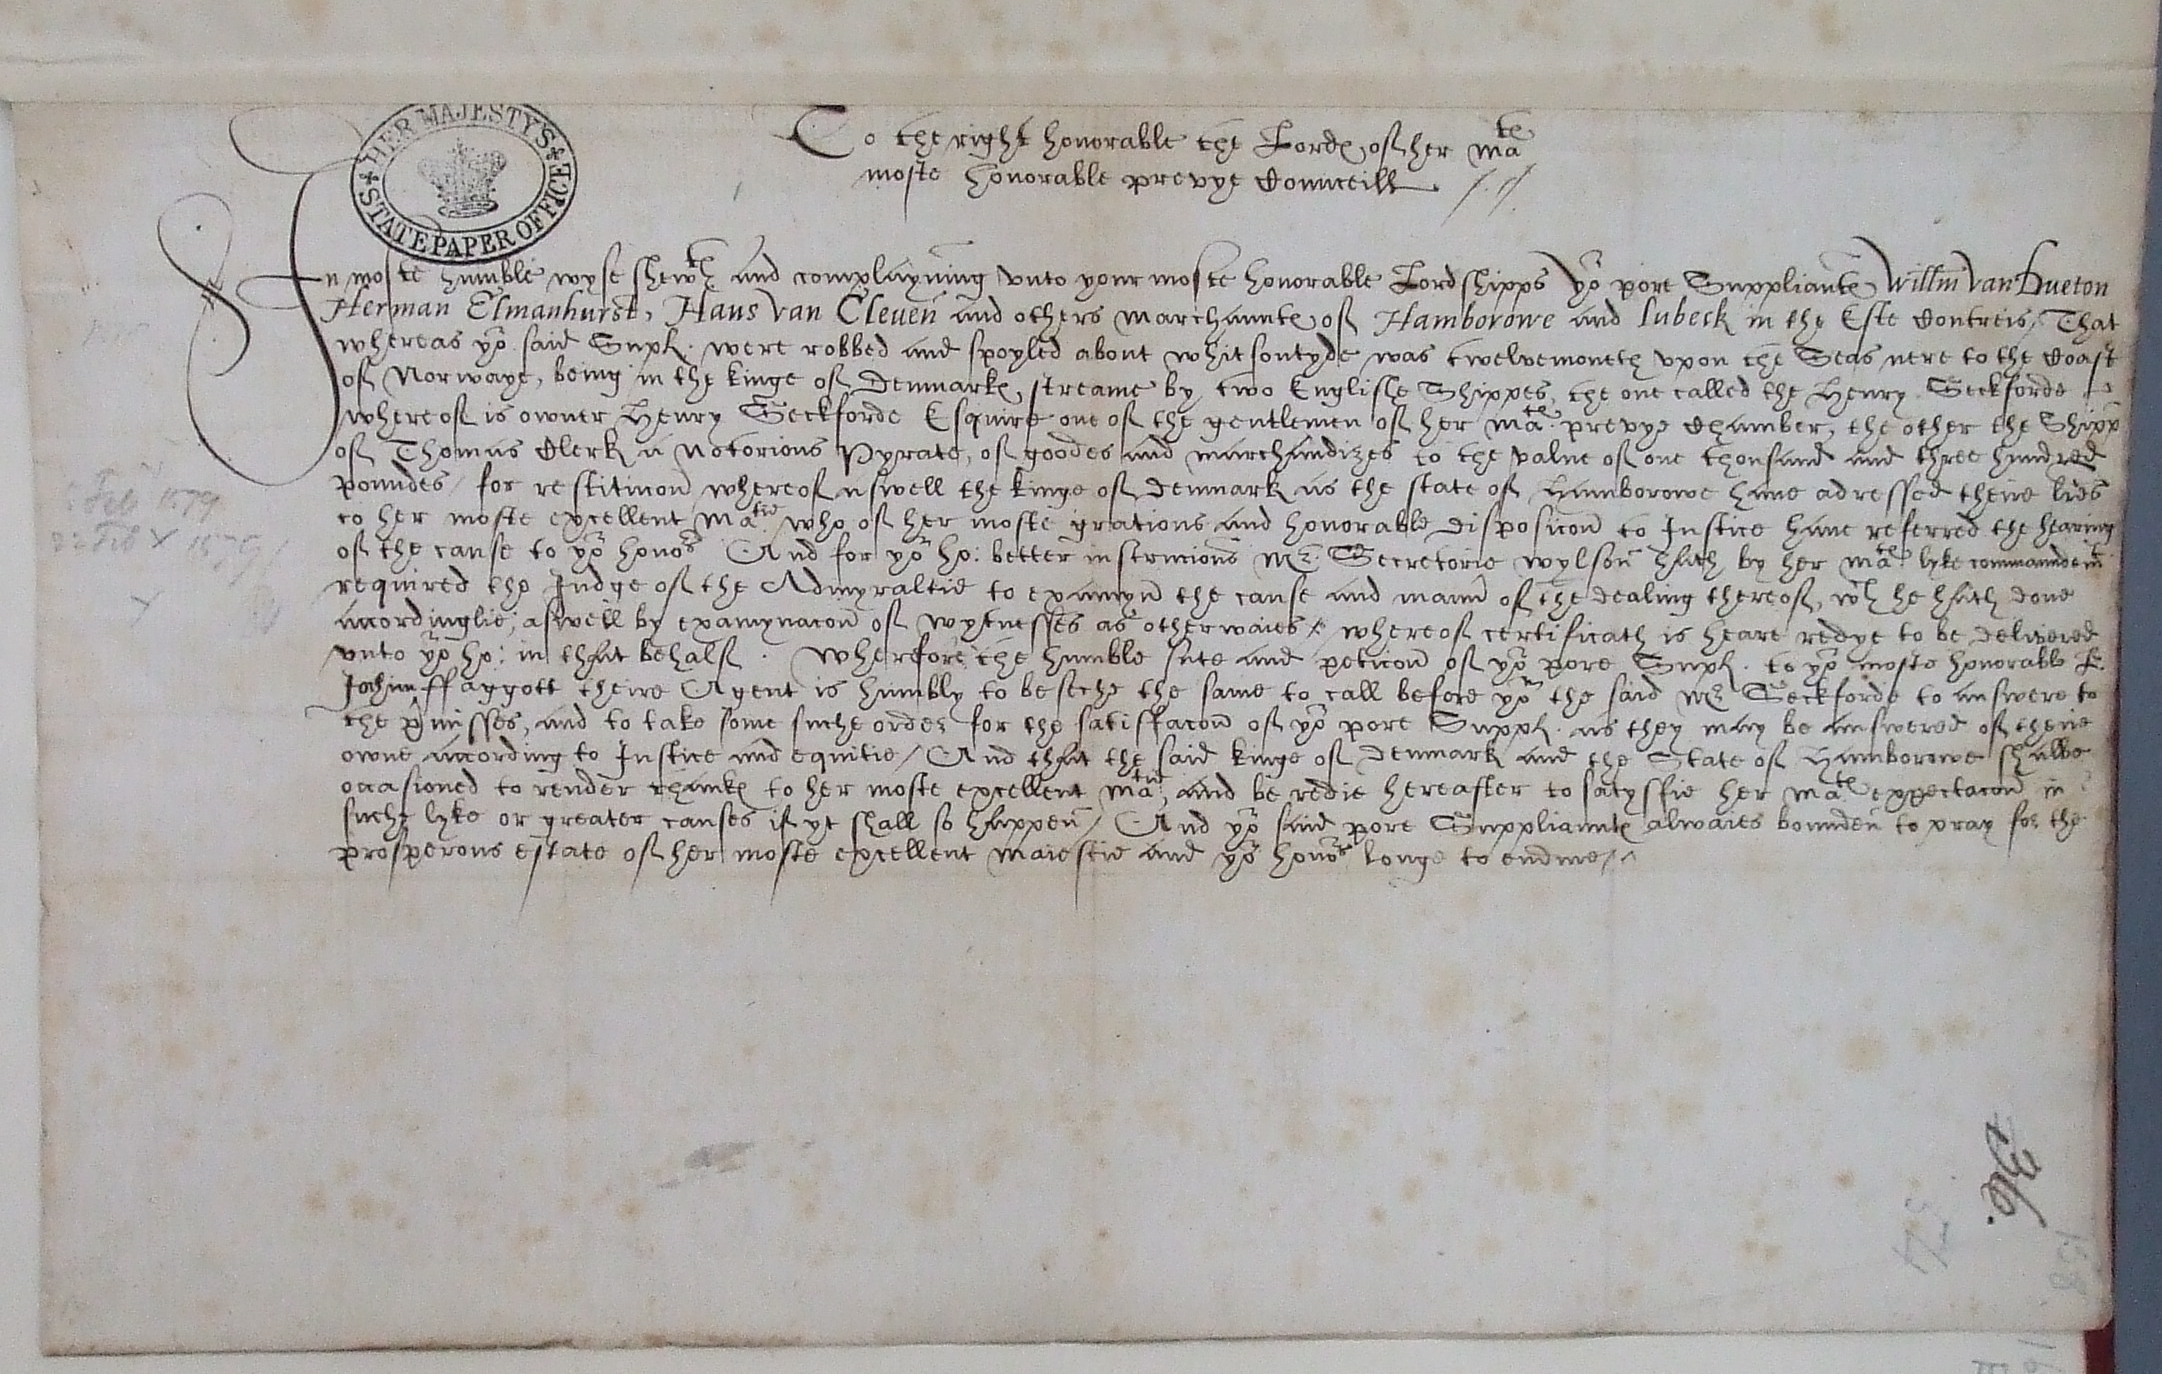 HER MAJESTY'S STATE PAPER OFFICE
To the right honorable the Lordes of her Ma:tes
moste honorable prevye Counceill
In moste humble wyse shewth and complayning vnto your moste honorable Lordshipps yor pore Suppliantes Willm van Hueton
Herman Elmanhurst, Hans van Cleuen and others marchauntes of Hamborowe and Lubeck in the Este Contreis, That
whereas yor said Supl. were robbed and spoyled about whitsontyde was twelvemoneth vpon the Seas nere to the Coast
of Norwaye, being in the kinge of Denmarkes streame by two Englishe Shippes, the one called the Henry Seckforde
whereof is owner Henry Seckforde Esquire one of the gentlemen of her Mates prevye Chamber, the other the Shipp
of Thomas Clerk a Notorious Pyrate, of goodes and marchandizes to the value of one thousand and three hundred
poundes / for restitucon whereof aswell the kinge of Denmark as the state of Hamborowe haue adressed theire lres
to her moste excellent Matie who of her moste gratious and honorable disposicon to Justice haue referred the hearing
of the cause to yor honors And for yor ho: better instrucions Mr. Secretorie wylson hath by her Mates lyke commaundemt
required the Judge of the Admyraltie to examyn the cause and maner of the dealing thereof, wch he hath done
accordinglie, aswell by examynacon of wytnesses as otherwaies / whereof certificath is heare redye to be delivered
vnto yor ho: in that behalf. Wherefore the humble sute and peticon of yor pore Supl. to yor moste honorable L.
Jochim ffaggott theire Agent is humbly to beseche the same to call before you the said Mr Seckforde to answere to
the pmisses, and to take some suche order for the satisfacon of yor pore Suppl. as they may be answered of theire
owne according to Justice and equitie / And that the said kinge of Denmark and the State of Hamborowe shalbe
occasioned to render thankes to her moste excellent Matie, and be redie hereafter to satysfie her Mates expectacon in
suche lyke or greater causes if yt shall so happen / And yor said pore Suppliauntes alwaies bounden to pray for the
prosperous estate of her moste excellent maiestie and yor honors longe to endure /
Feb 1579
22 Feb X 1579